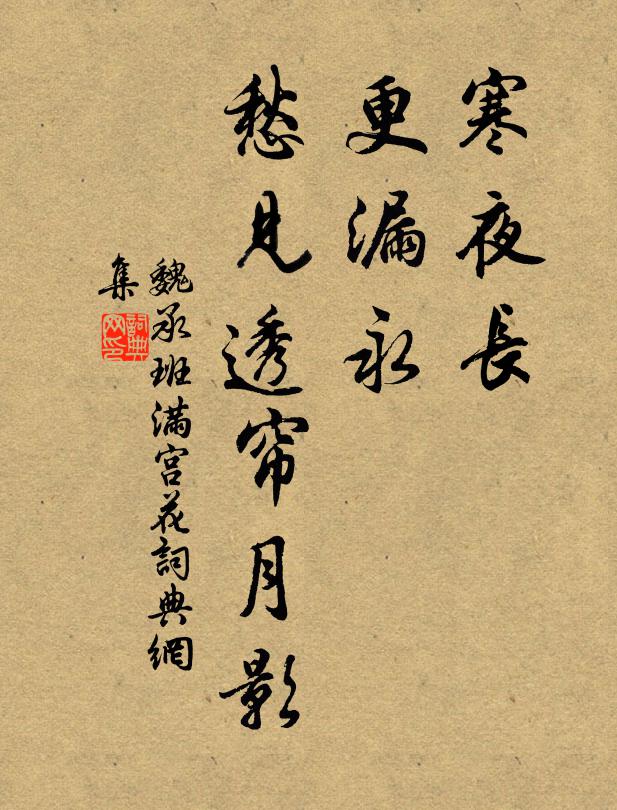 寒夜長
更漏永
愁見透帘月影
魏承班滿宮花詞典網
集
詞典網印